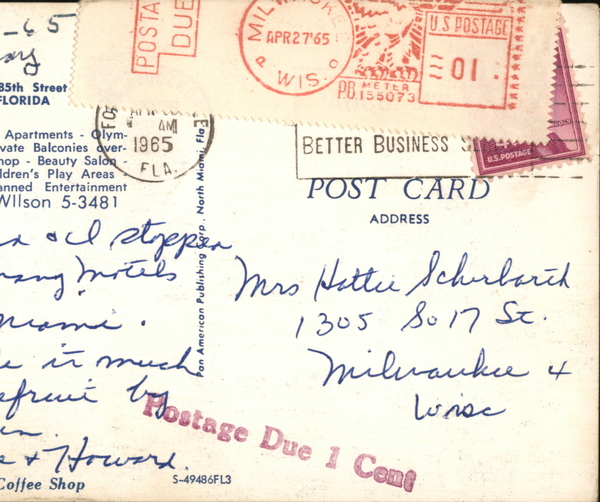 -65
POSTA
DUE
MILWAUKEE
APR 27'65
P O
WIS.
P.B. METER
155073
U.S. POSTAGE
01
85th Street
FLORIDA
Apartments - Olym-
vate Balconies over-
hop - Beauty Salon
ldren's Play Areas
anned Entertainment
WIlson 5-3481
AM
1965
FLA.
BETTER BUSINESS
U.S. POSTAGE
POST CARD
ADDRESS
Pan American Publishing Corp., North Miami, Fla.
& I stopped
many Motels
Miami.
it much
by
& Howard.
Coffee Shop
Mrs Hattie Scherbarth
1305 So 17 St.
Milwaukee 4
Wisc
Postage Due 1 Cent
S-49486FL3